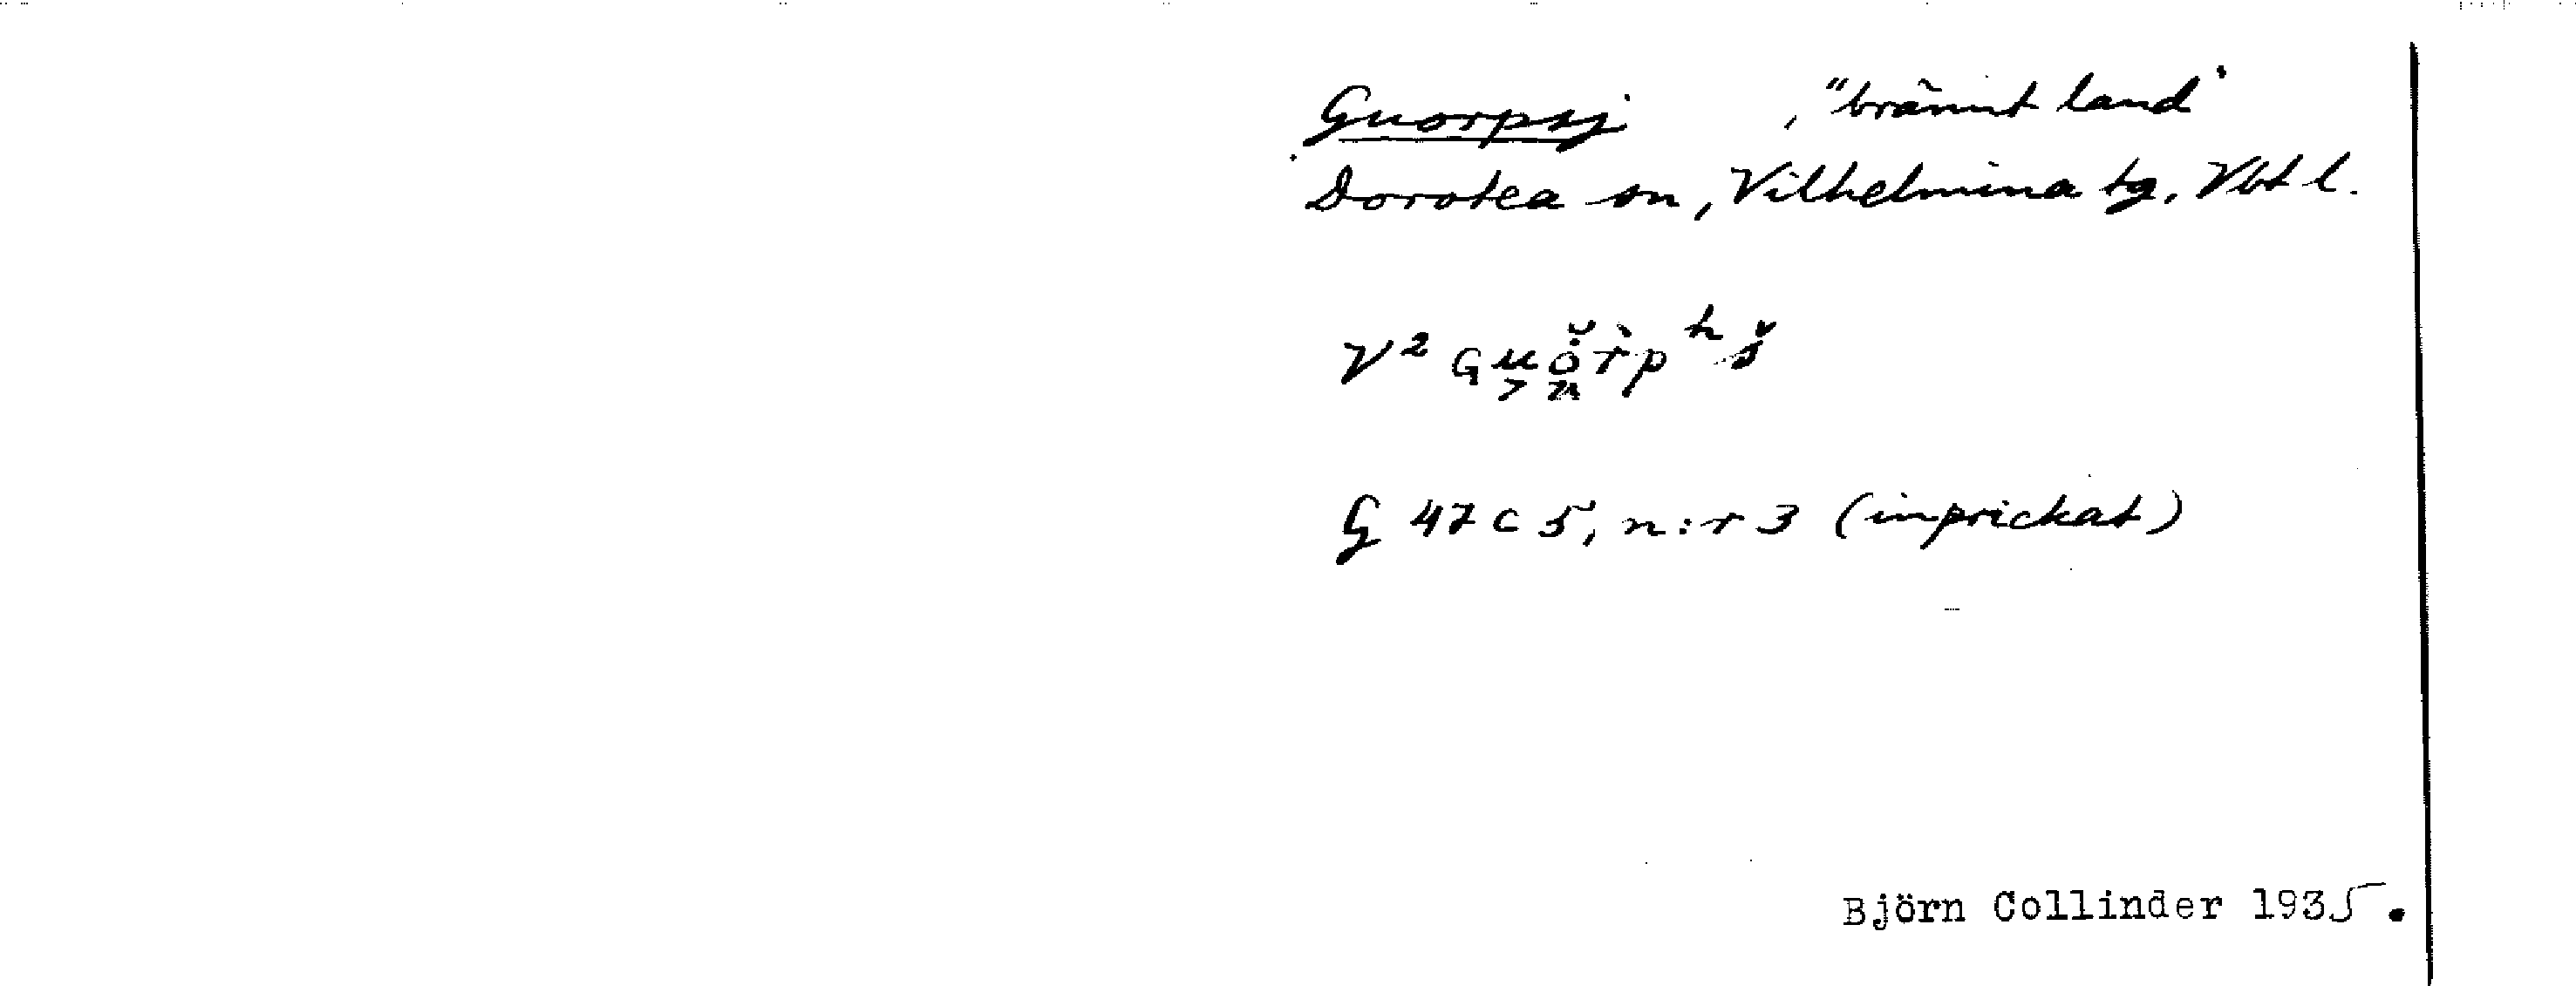 Guorpsj , "bränt land"
Dorotea sn, Vilhelmina tg, Vbt l.
V² Guo̊̆r̀pʰš
G 47 C 5, n:r 3 (inprickat)
Björn Collinder 1935.